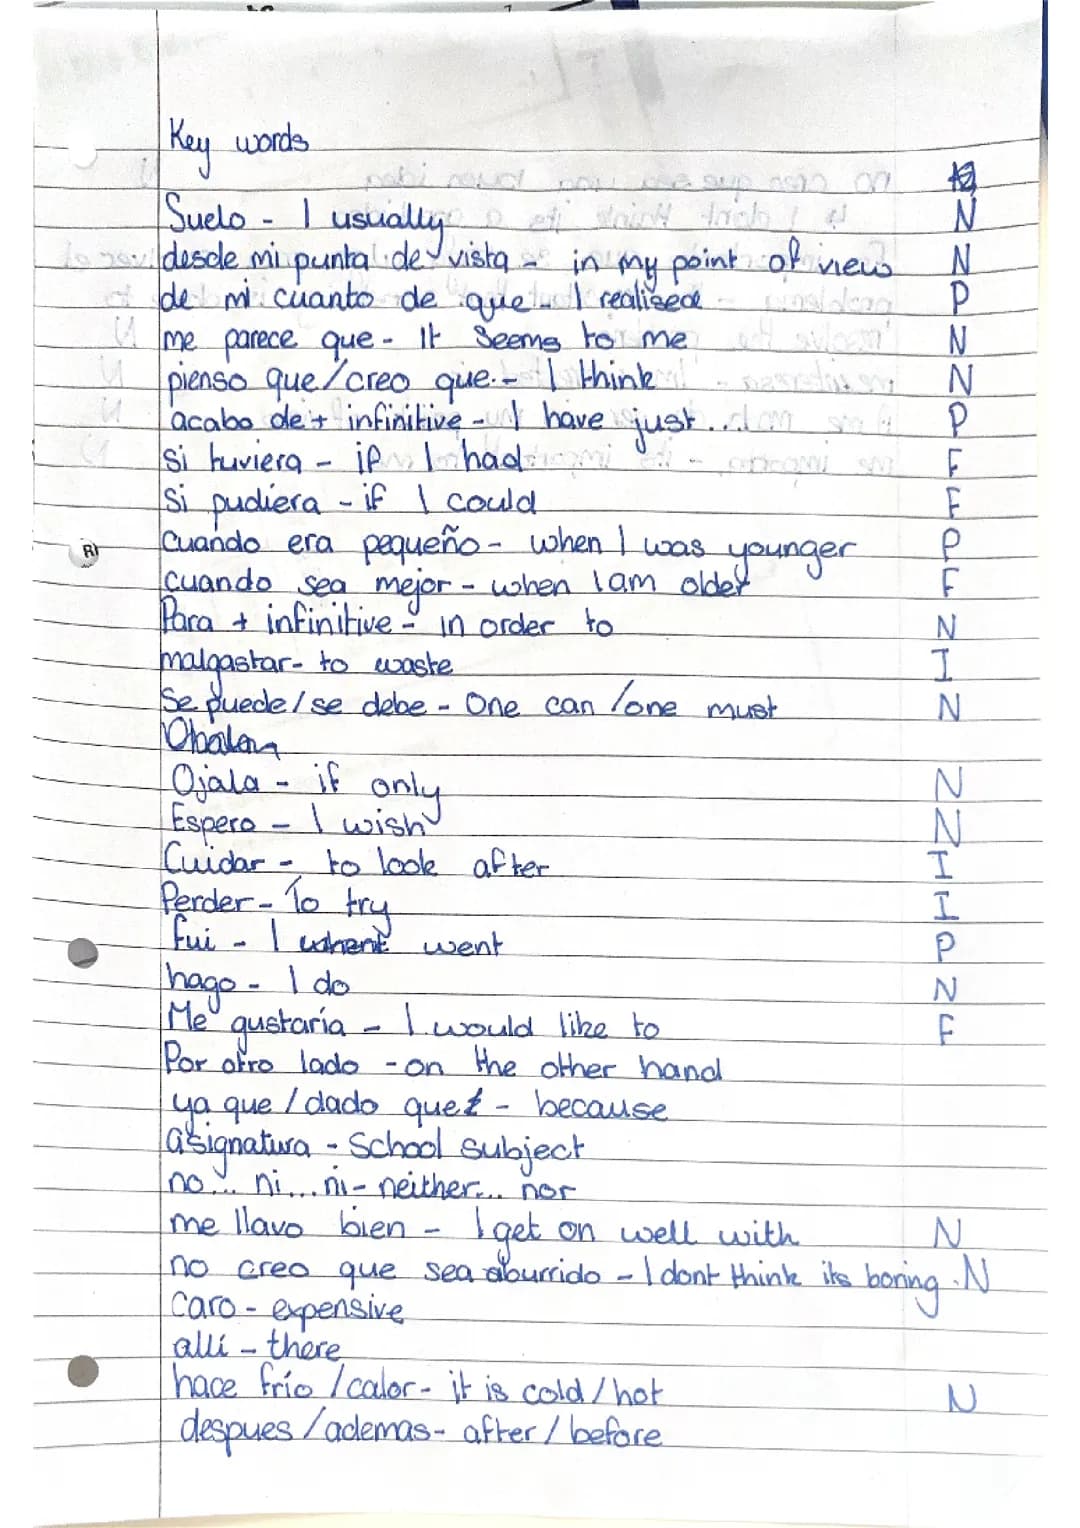 Key words
Suelo - I usually N
desde mi punta de vista - in my point of view N
de mi cuanto de que - I realised P
me parece que - It seems to me N
pienso que/creo que - I think N
acabo de + infinitive - I have just... P
Si tuviera - if I had F
Si pudiera - if I could F
Cuando era pequeño - when I was younger P
cuando sea mejor - when I am older F
Para + infinitive - in order to N
malgastar - to waste I
Se puede/se debe - One can/one must N
Ojala - if only N
Espero - I wish N
Cuidar - to look after I
Perder - To try I
fui - I went P
hago - I do N
Me gustaría - I would like to F
Por otro lado - on the other hand
ya que / dado que - because
asignatura - School subject
no... ni... ni - neither... nor
me llavo bien - I get on well with N
no creo que sea aburrido - I dont think its boring. N
Caro - expensive
allí - there
hace frío / calor - it is cold/hot N
despues / ademas - after / before